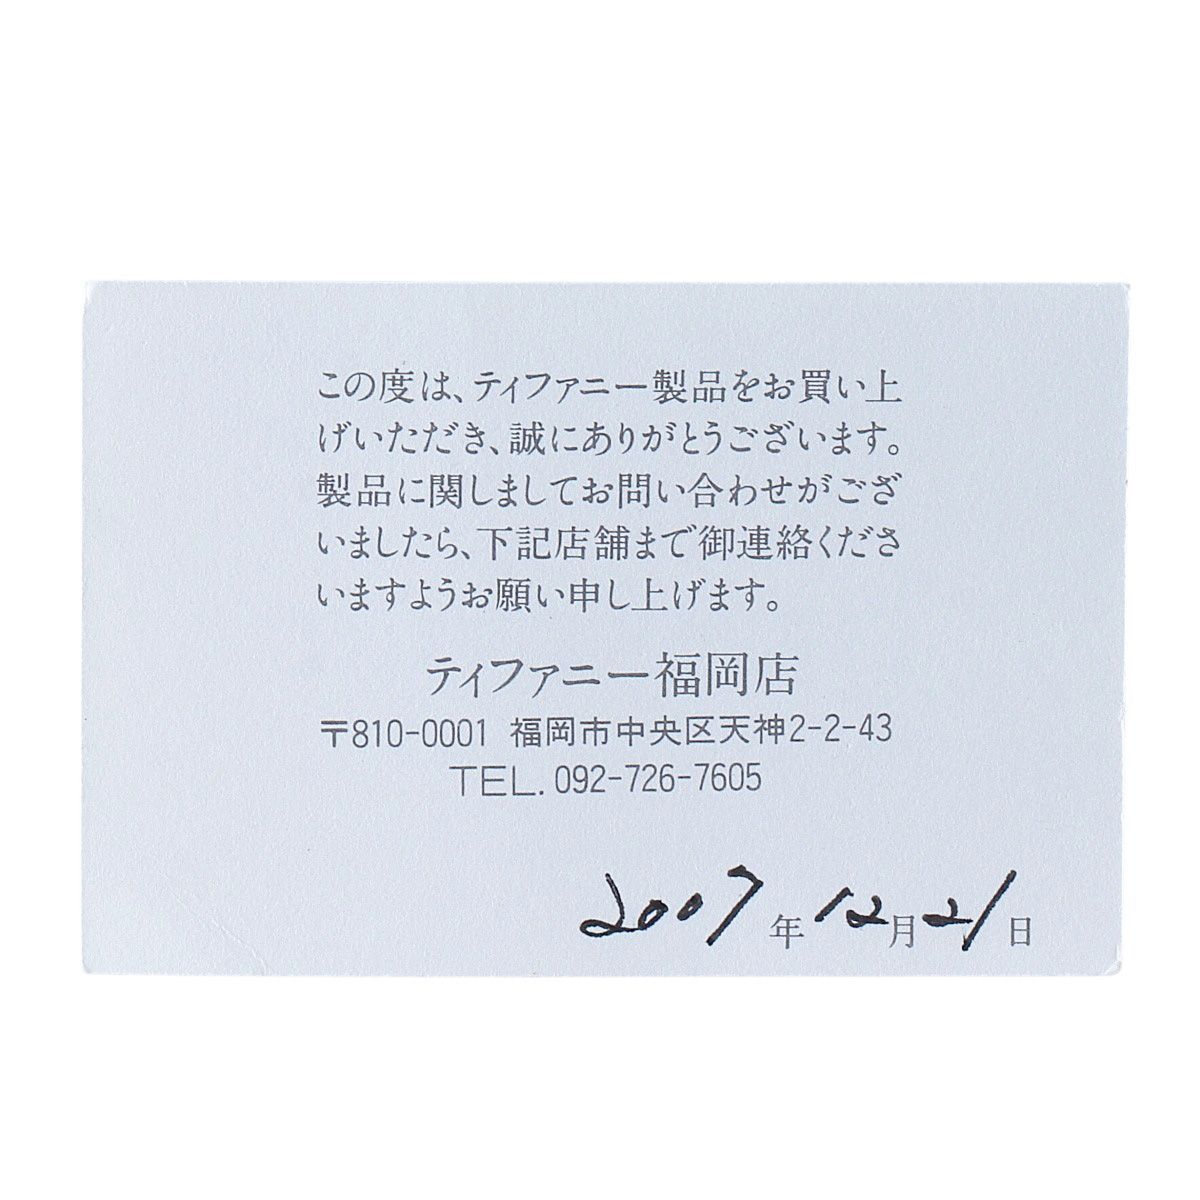 この度は、ティファニー製品をお買い上
げいただき、誠にありがとうございます。
製品に関しましてお問い合わせがござ
いましたら、下記店舗まで御連絡くださ
いますようお願い申し上げます。
ティファニー福岡店
〒810-0001 福岡市中央区天神2-2-43
TEL. 092-726-7605
2007年12月21日